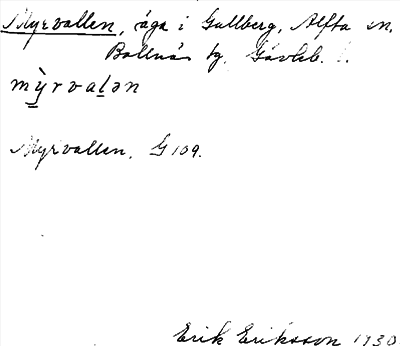 Myrvallen, äga i Gullberg, Alfta sn,
Bollnäs tg. Gävleb. l.
mỳrvalən
Myrvallen, G 109.
Erik Eriksson 1930